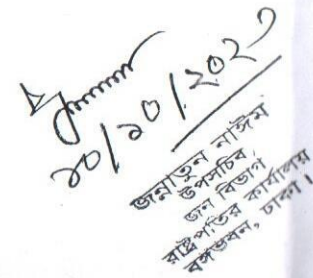 ১০/১০/২০২১
জন্নাতুন নাঈম
উপসচিব
জন বিভাগ
রাষ্ট্রপতির কার্যালয়
বঙ্গভবন, ঢাকা।